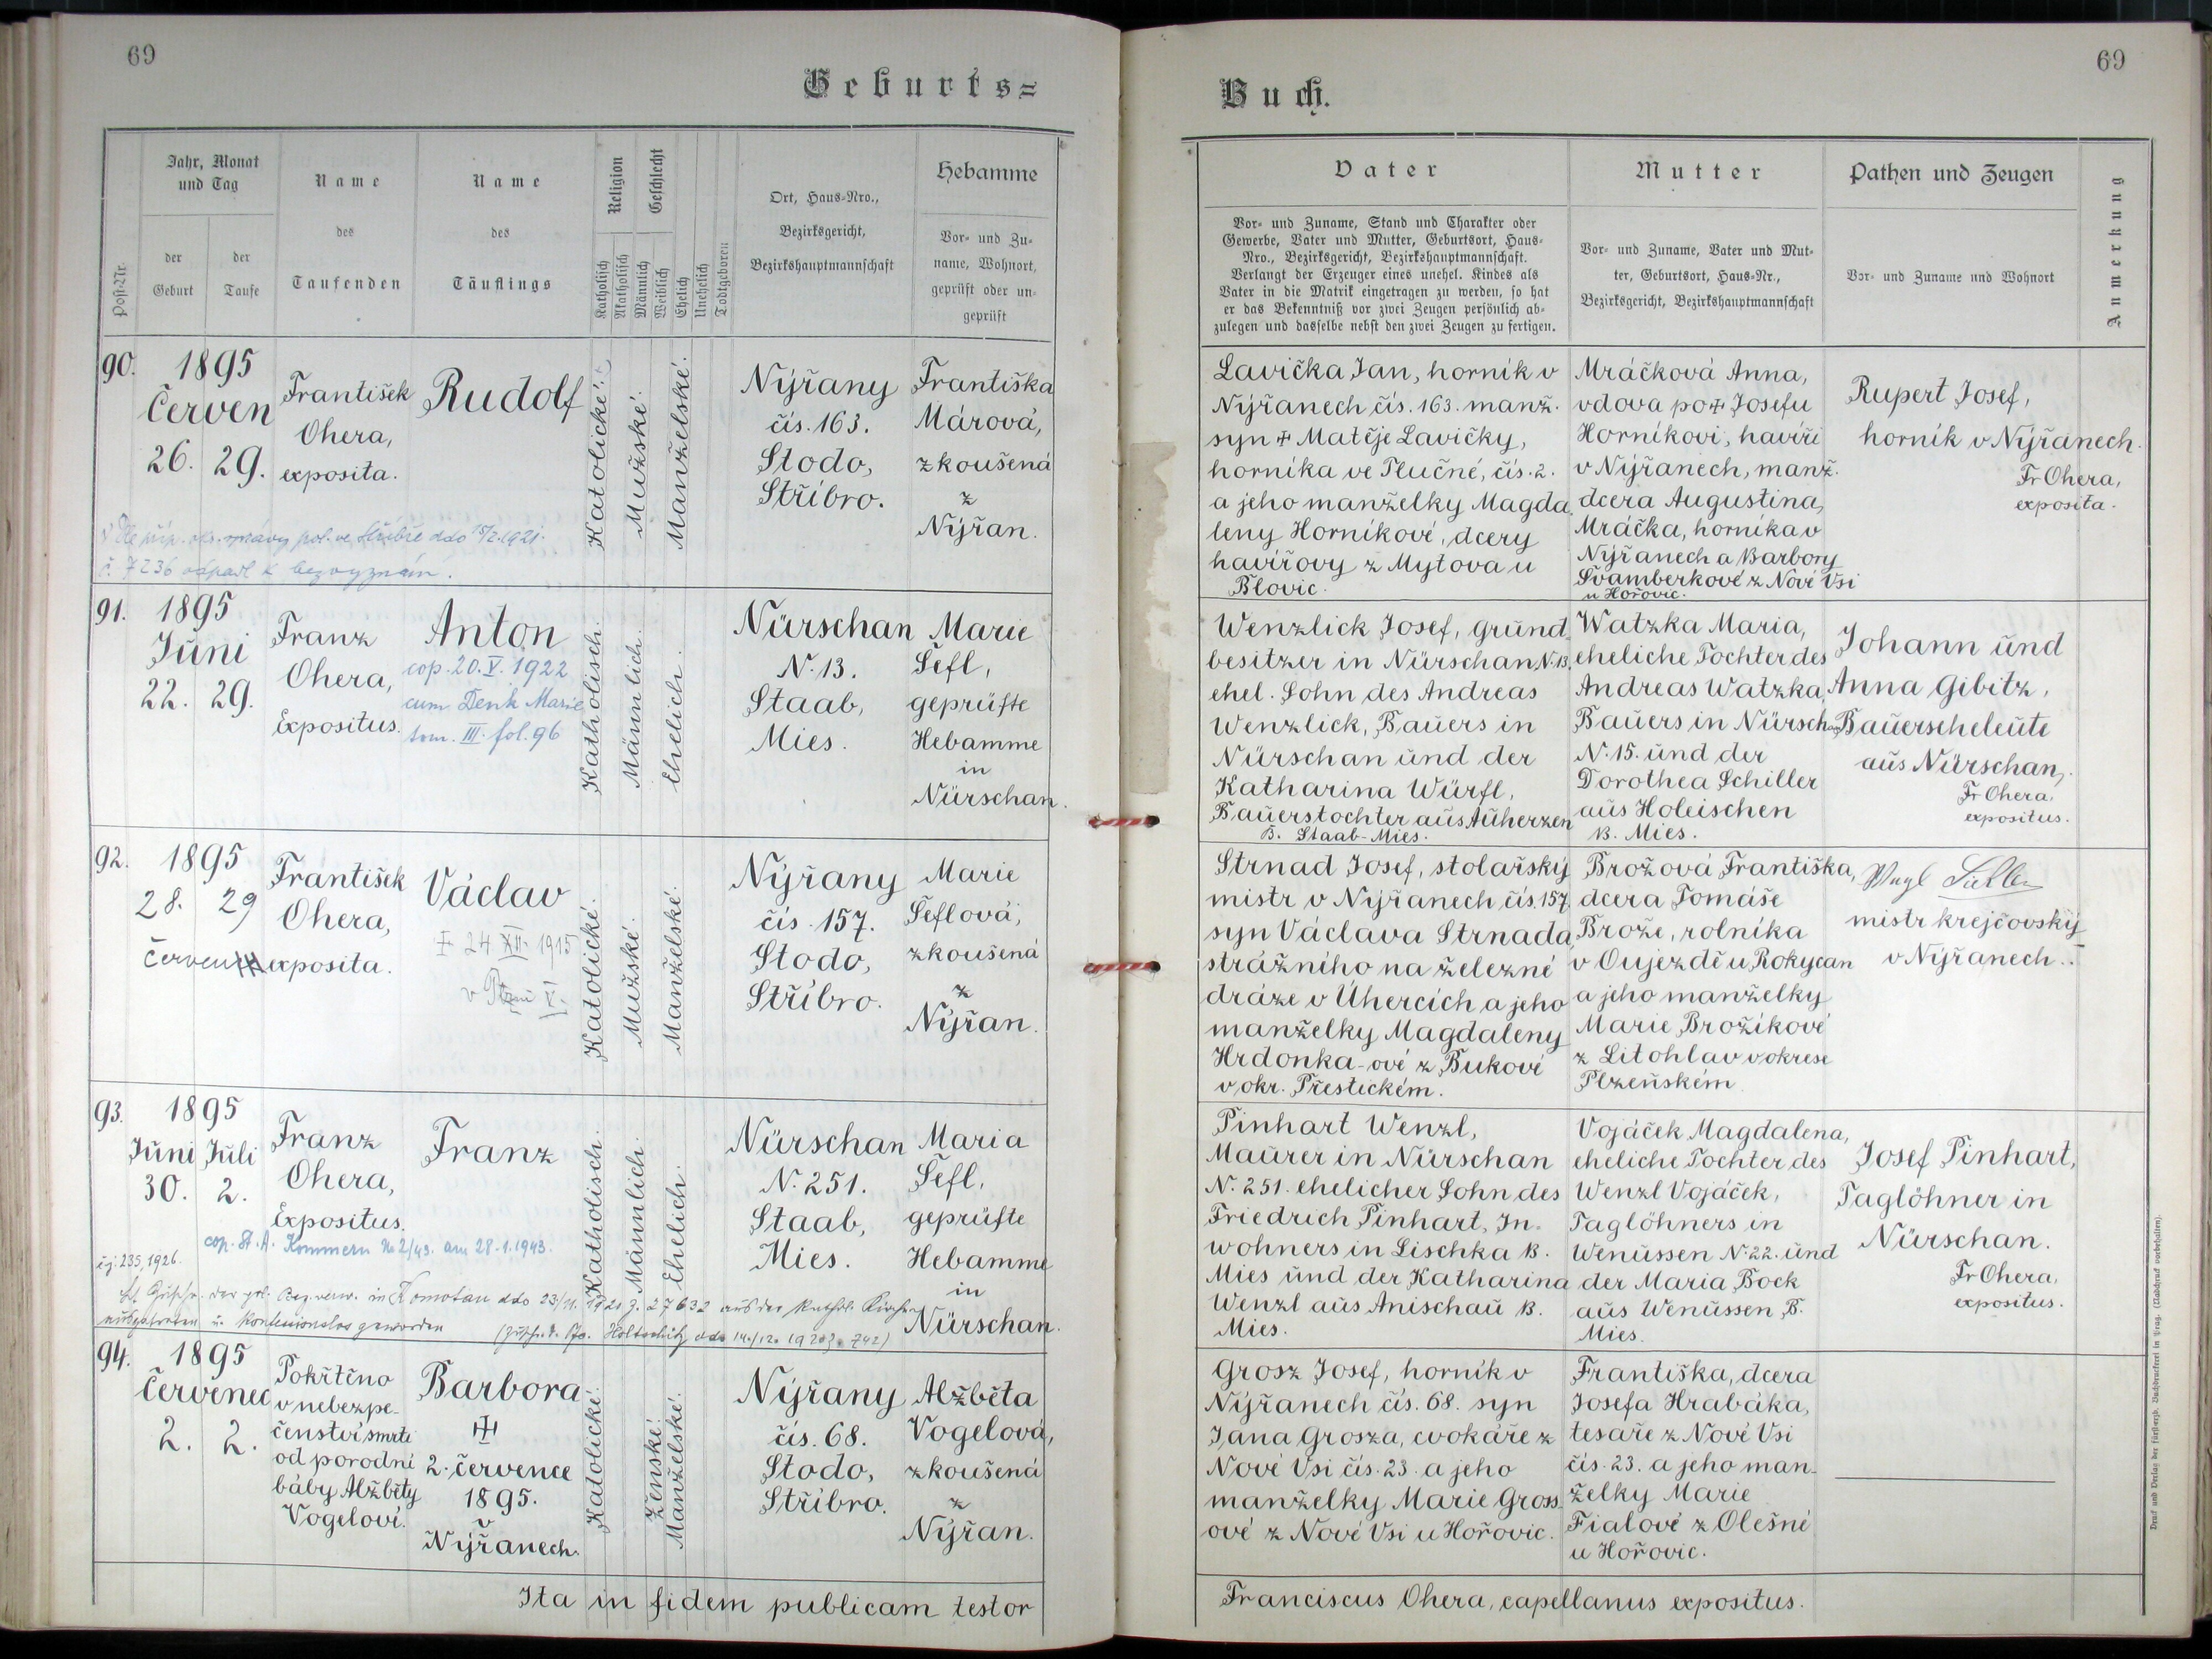 69
Geburts=
Jahr, Monat
und Tag
Name
des
Taufenden
Name
des
Täuflings
Religion
Geschlecht
Ort, Haus-Nro.,
Bezirksgericht,
Bezirkshauptmannschaft
Hebamme
Post-Nr.
der
Geburt
der
Taufe
Katholisch
Akatholisch
Männlich
Weiblich
Ehelich
Unehelich
Todtgeboren
Vor- und Zu-
name, Wohnort,
geprüft oder un-
geprüft
90.
1895
Červen
26. 29.
František
Ohera,
exposita.
Rudolf
Katolické.
Mužské.
Manželské.
Nýřany
čís. 163.
Stodo,
Stříbro.
Františka
Márová,
zkoušená
z
Nýřan.
ve Stříbře ddo 15/2.1921.
č. 7236 odpadl k bezvyznán.
91.
1895
Juni
22. 29.
Franz
Ohera,
Expositus.
Anton
cop. 20. V. 1922
cum Denk Marie
tom. III. fol. 96
Katholisch.
Männlich.
Ehelich.
Nürschan
N. 13.
Staab,
Mies.
Marie
Šefl,
geprüfte
Hebamme
in
Nürschan.
92.
1895
28. 29
Červen
František
Ohera,
exposita.
Václav
24 XII. 1915
v
Katolické.
Mužské.
Manželské.
Nýřany
čís. 157.
Stodo,
Stříbro.
Marie
Šeflová,
zkoušená
z
Nýřan.
93.
1895
Juni Juli
30. 2.
Franz
Ohera,
Expositus.
Franz
Katholisch.
Männlich.
Ehelich.
Nürschan
N. 251.
Staab,
Mies.
Maria
Šefl,
geprüfte
Hebamme
in
Nürschan.
cop. St. A. Kommern No 2/43. am 28.1.1943.
235, 1926.
der pol. Bez. verw. in Komotau ddo 23/11. 1920 z. 27632 aus der kathol. Kirche
ausgetreten u. konfessionslos geworden
94.
1895
Červenec
2. 2.
Pokřtěno
v nebezpe-
čenství smrti
od porodní
báby Alžběty
Vogelové.
Barbora
2. července
1895.
v
Nýřanech.
Katolické.
Ženské.
Manželské.
Nýřany
čís. 68.
Stodo,
Stříbro.
Alžběta
Vogelová,
zkoušená
z
Nýřan.
Ita in fidem publicam testor
69
Buch.
Vater
Mutter
Pathen und Zeugen
Anmerkung
Vor- und Zuname, Stand und Charakter oder
Gewerbe, Vater und Mutter, Geburtsort, Haus-
Nro., Bezirksgericht, Bezirkshauptmannschaft.
Verlangt der Erzeuger eines unehel. Kindes als
Vater in die Matrik eingetragen zu werden, so hat
er das Bekenntniß vor zwei Zeugen persönlich ab-
zulegen und dasselbe nebst den zwei Zeugen zu fertigen.
Vor- und Zuname, Vater und Mut-
ter, Geburtsort, Haus-Nr.,
Bezirksgericht, Bezirkshauptmannschaft
Vor- und Zuname und Wohnort
Lavička Jan, horník v
Nýřanech čís. 163. manž.
syn ✝ Matěje Lavičky,
horníka ve Tlučné, čís. 2.
a jeho manželky Magda
leny Horníkové, dcery
havířovy z Mytova u
Blovic.
Mráčková Anna,
vdova po ✝ Josefu
Horníkovi, havíři
v Nýřanech, manž.
dcera Augustina
Mráčka, horníka v
Nýřanech a Barbory
Švamberkové z Nové Vsi
u Hořovic.
Rupert Josef,
horník v Nýřanech.
Fr Ohera,
exposita.
Wenzlick Josef, Grund
besitzer in Nürschan N. 13,
ehel. Sohn des Andreas
Wenzlick, Bauers in
Nürschan und der
Katharina Würfl,
Bauerstochter aus Auherzen
B. Staab-Mies.
Watzka Maria,
eheliche Tochter des
Andreas Watzka,
Bauers in Nürschan
N. 15. und der
Dorothea Schiller
aus Holeischen
B. Mies.
Johann und
Anna Gibitz,
Bauerseheleute
aus Nürschan,
Fr Ohera,
expositus.
Strnad Josef, stolařský
mistr v Nýřanech, čís. 157,
syn Václava Strnada
strážního na železné
dráze v Úhercích a jeho
manželky Magdaleny
Hrdonka-ové z Bukové
v okr. Přestickém.
Brožová Františka,
dcera Tomáše
Brože, rolníka
v Oujezdě u Rokycan
a jeho manželky
Marie Brožíkové
z Litohlav v okrese
Plzeňském
mistr krejčovský
v Nýřanech.
Pinhart Wenzl,
Maurer in Nürschan
N. 251. ehelicher Sohn des
Friedrich Pinhart, In-
wohners in Lischka B.
Mies und der Katharina
Wenzl aus Anischau B.
Mies.
Vojáček Magdalena,
eheliche Tochter des
Wenzl Vojáček,
Taglöhners in
Wenussen N. 22. und
der Maria Bock
aus Wenussen, B.
Mies.
Josef Pinhart,
Taglöhner in
Nürschan.
Fr Ohera,
expositus.
Grosz Josef, horník v
Nýřanech čís. 68. syn
Jana Grosza, cvokáře z
Nové Vsi čís. 23. a jeho
manželky Marie Gross
ové z Nové Vsi u Hořovic.
Františka, dcera
Josefa Hrabáka,
tesaře z Nové Vsi
čís. 23. a jeho man-
želky Marie
Fialové z Olešné
u Hořovic.
Franciscus Ohera, capellanus expositus.
Druck und Verlag der fürsterzb. Buchdruckerei in Prag. (Nachdruck vorbehalten).